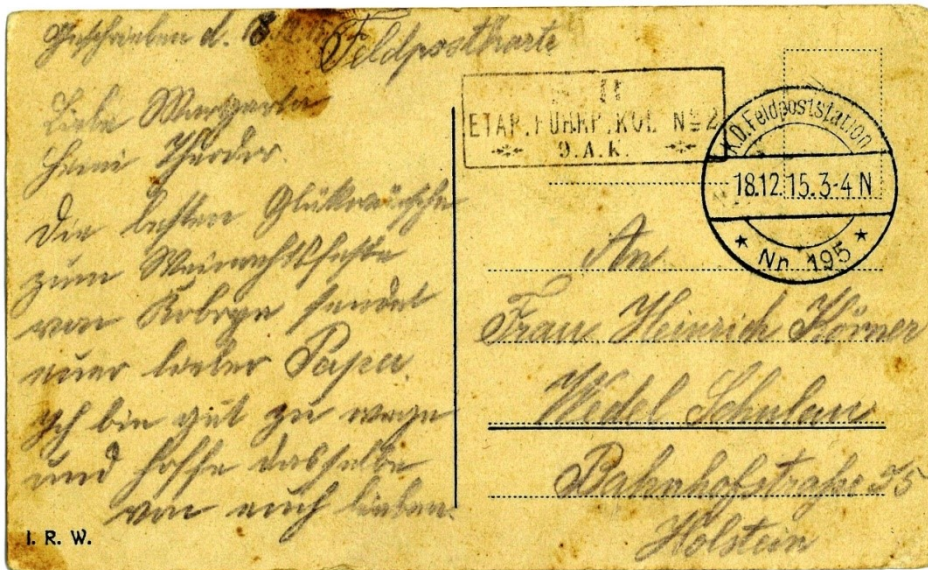 Geschrieben d. 18.12.15
Feldpostkarte
Liebe Margareta
Heini Theodor.
Die besten Glükwünsche
zum Weinachtsfeste
von Kobryn sendet
euer lieber Papa.
Ich bin gut zu wege
und hoffe dasselbe
von euch lieben.
I. R. W.
ETAP. FUHRP. KOL. No 2
9. A. K.
K.D. Feldpoststation
18.12.15. 3-4 N
Nr. 195
An
Frau Heinrich Körner
Wedel Schulau
Bahnhofstraße 35
Holstein